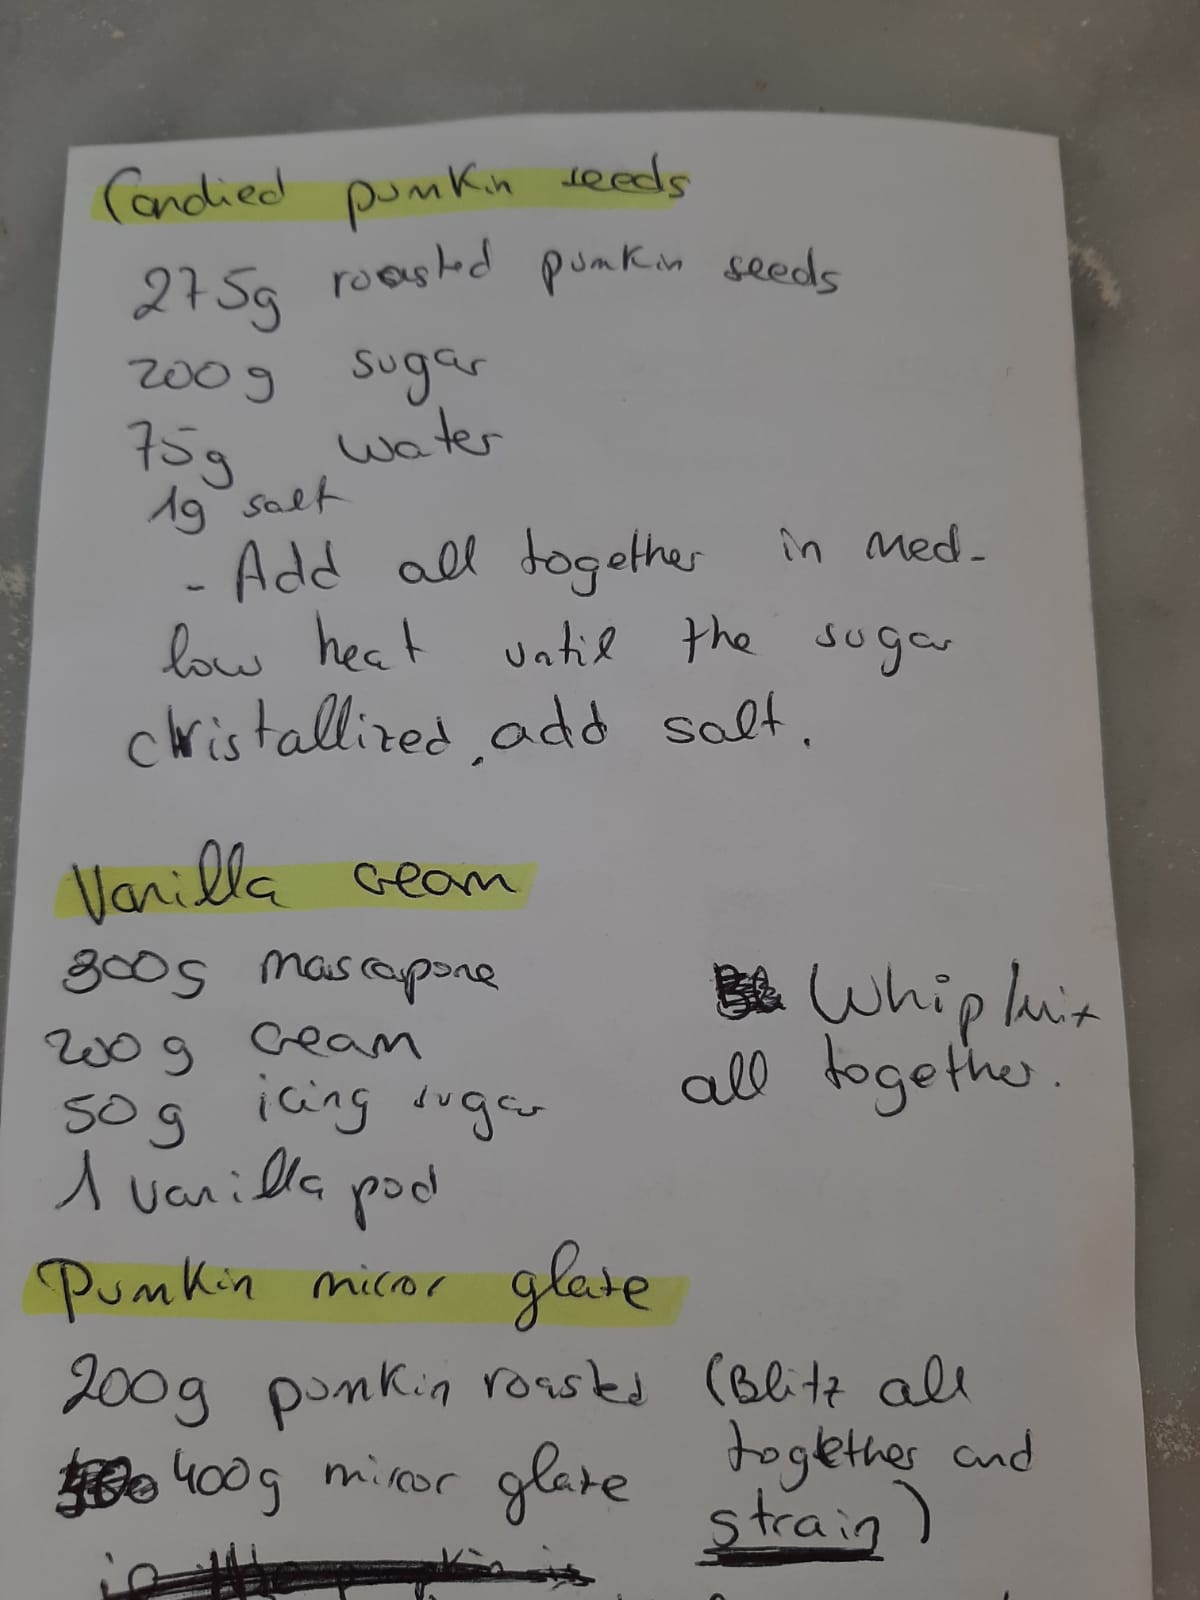 Candied pumkin seeds
275g roasted pumkin seeds
200g sugar
75g water
1g salt
- Add all together in med-
low heat until the sugar
christallized, add salt.
Vanilla cream
300g mascapone
200g cream
50g icing sugar
1 vanilla pod
Whip/mix
all together.
Pumkin miror glaze
200g pumkin roasted
400g miror glaze
(Blitz all
together and
strain)